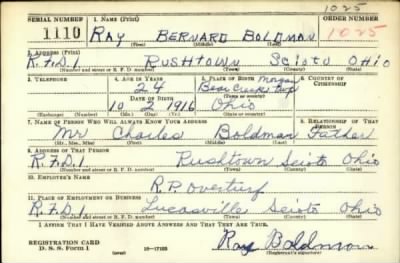 1025
SERIAL NUMBER 1. NAME (Print) ORDER NUMBER
1110 RAY BERNARD BOLDMAN 1025
(First) (Middle) (Last)
2. ADDRESS (Print)
R.F.D.1 RUSHTOWN Scioto OHIO
(Number and street or R. F. D. number) (Town) (County) (State)
3. TELEPHONE 4. AGE IN YEARS 5. PLACE OF BIRTH 6. COUNTRY OF CITIZENSHIP
24 Morgan
DATE OF BIRTH Bear Creek Twp
10 2 1916 Ohio
(Exchange) (Number) (Mo.) (Day) (Yr.) (State or country)
7. NAME OF PERSON WHO WILL ALWAYS KNOW YOUR ADDRESS 8. RELATIONSHIP OF THAT PERSON
Mr Charles Boldman Father
(Mr., Mrs., Miss) (First) (Middle) (Last)
9. ADDRESS OF THAT PERSON
R.F.D.1 Rushtown Scioto Ohio
(Number and street or R. F. D. number) (Town) (County) (State)
10. EMPLOYER'S NAME
R.P. Overturf
11. PLACE OF EMPLOYMENT OR BUSINESS
R.F.D.1 Lucasville Scioto Ohio
(Number and street or R. F. D. number) (Town) (County) (State)
I AFFIRM THAT I HAVE VERIFIED ABOVE ANSWERS AND THAT THEY ARE TRUE.
REGISTRATION CARD
D. S. S. Form 1 (over) 16—17105 Ray Boldman
(Registrant's signature)